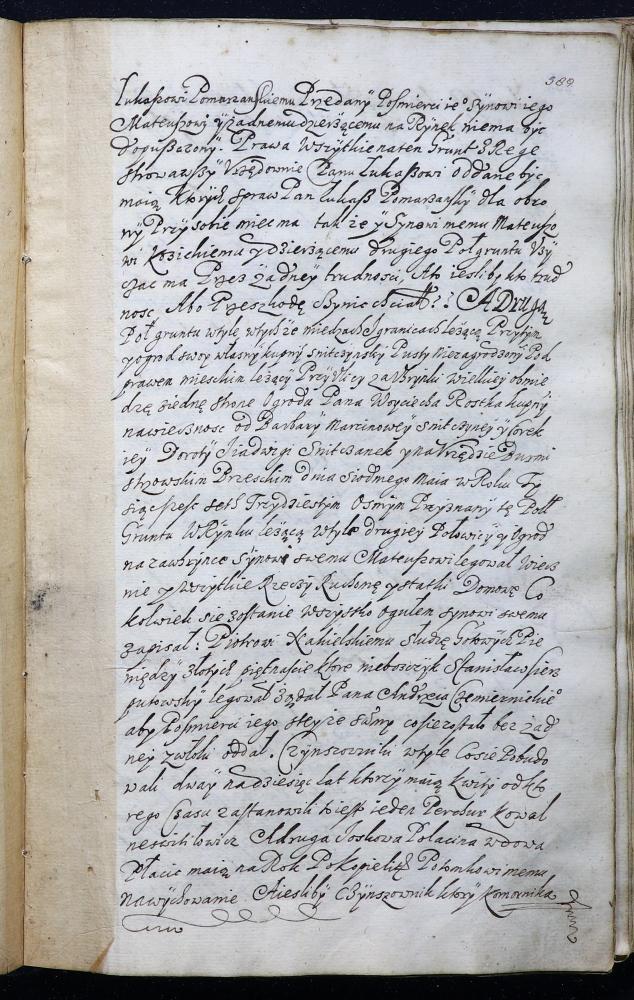 389
Łukaszowi Pomarzanskiemu Przedany Posmierci ie° Synowi iego
Mateuszowi yzadnemu dzerzącemu na Rynek niema byc
dopuszczony. Prawa Wszytkie naten Grunt
Vrzędownie Panu Łukaszowi Oddane byc
maią Ktorych spraw Pan Łukasz Pomarzanski dla obro
ny Przy sobie miec ma tak ze y Synowi memu Mateuszo
wi y dzierzącemu drugiego Poł gruntu Vzy
czac ma Przez zadney trudnosci, Ato iesliby kto trud
nosc Abo Przeszkodę Czynic chciał?? A Drugą
Poł gruntu wtyle wtychze miedzach y granicach leżącę Przytym
y ogrod swoy własny kupny Snitczynsky Pusty Niezagrodzony Pod
prawem mieskim leżący Przy Vlicy zawbrynki wielkiey obmie
dzę ziednę stronę Ogroda Pana Woyciecha Rostka kupny
nawiecznosc od Barbary Marcinowey Snitczyney y Corek
iey Doroty Jiadwigi Snitczanek yna Vrzędzie Burmi
strzowskim Brzeskim dnia siodmego Maia w Roku Ty
siąc szesc seth Trzydziestym Osmym Przyznany tę Poł
Gruntu WRynku leżącą wtyle drugiey Połowicy y Ogrod
na Synowi swemu Mateuszowi legował wiecz
nie y wszytkie Rzeczy Ruchome y statki Domowe Co
kolwiek się zostanie wszystko ogułem synowi swemu
zapisał: Piotrowi Kabielskiemu słudze Gotowych Pie
niędzy złotych piętnascie ktore nieboszczyk Stanisław
legował żądał Pana Andrzeia
aby Posmierci iego steyze summy cosie zastało bez żad
ney zwłoki oddał. Czynszownikı wtyle Cosie Pobudo
wali dway nadziesięc lat ktorzy maią kwity od kto
rego Czasu zastanowili to iest ieden Perchur Kowal
Adruga Joskowa Polacina wdowa
Płacic maią na Rok PoKopie Potomkowi memu
na wychowanie Aiesliby Czynszownik ktory Komornika